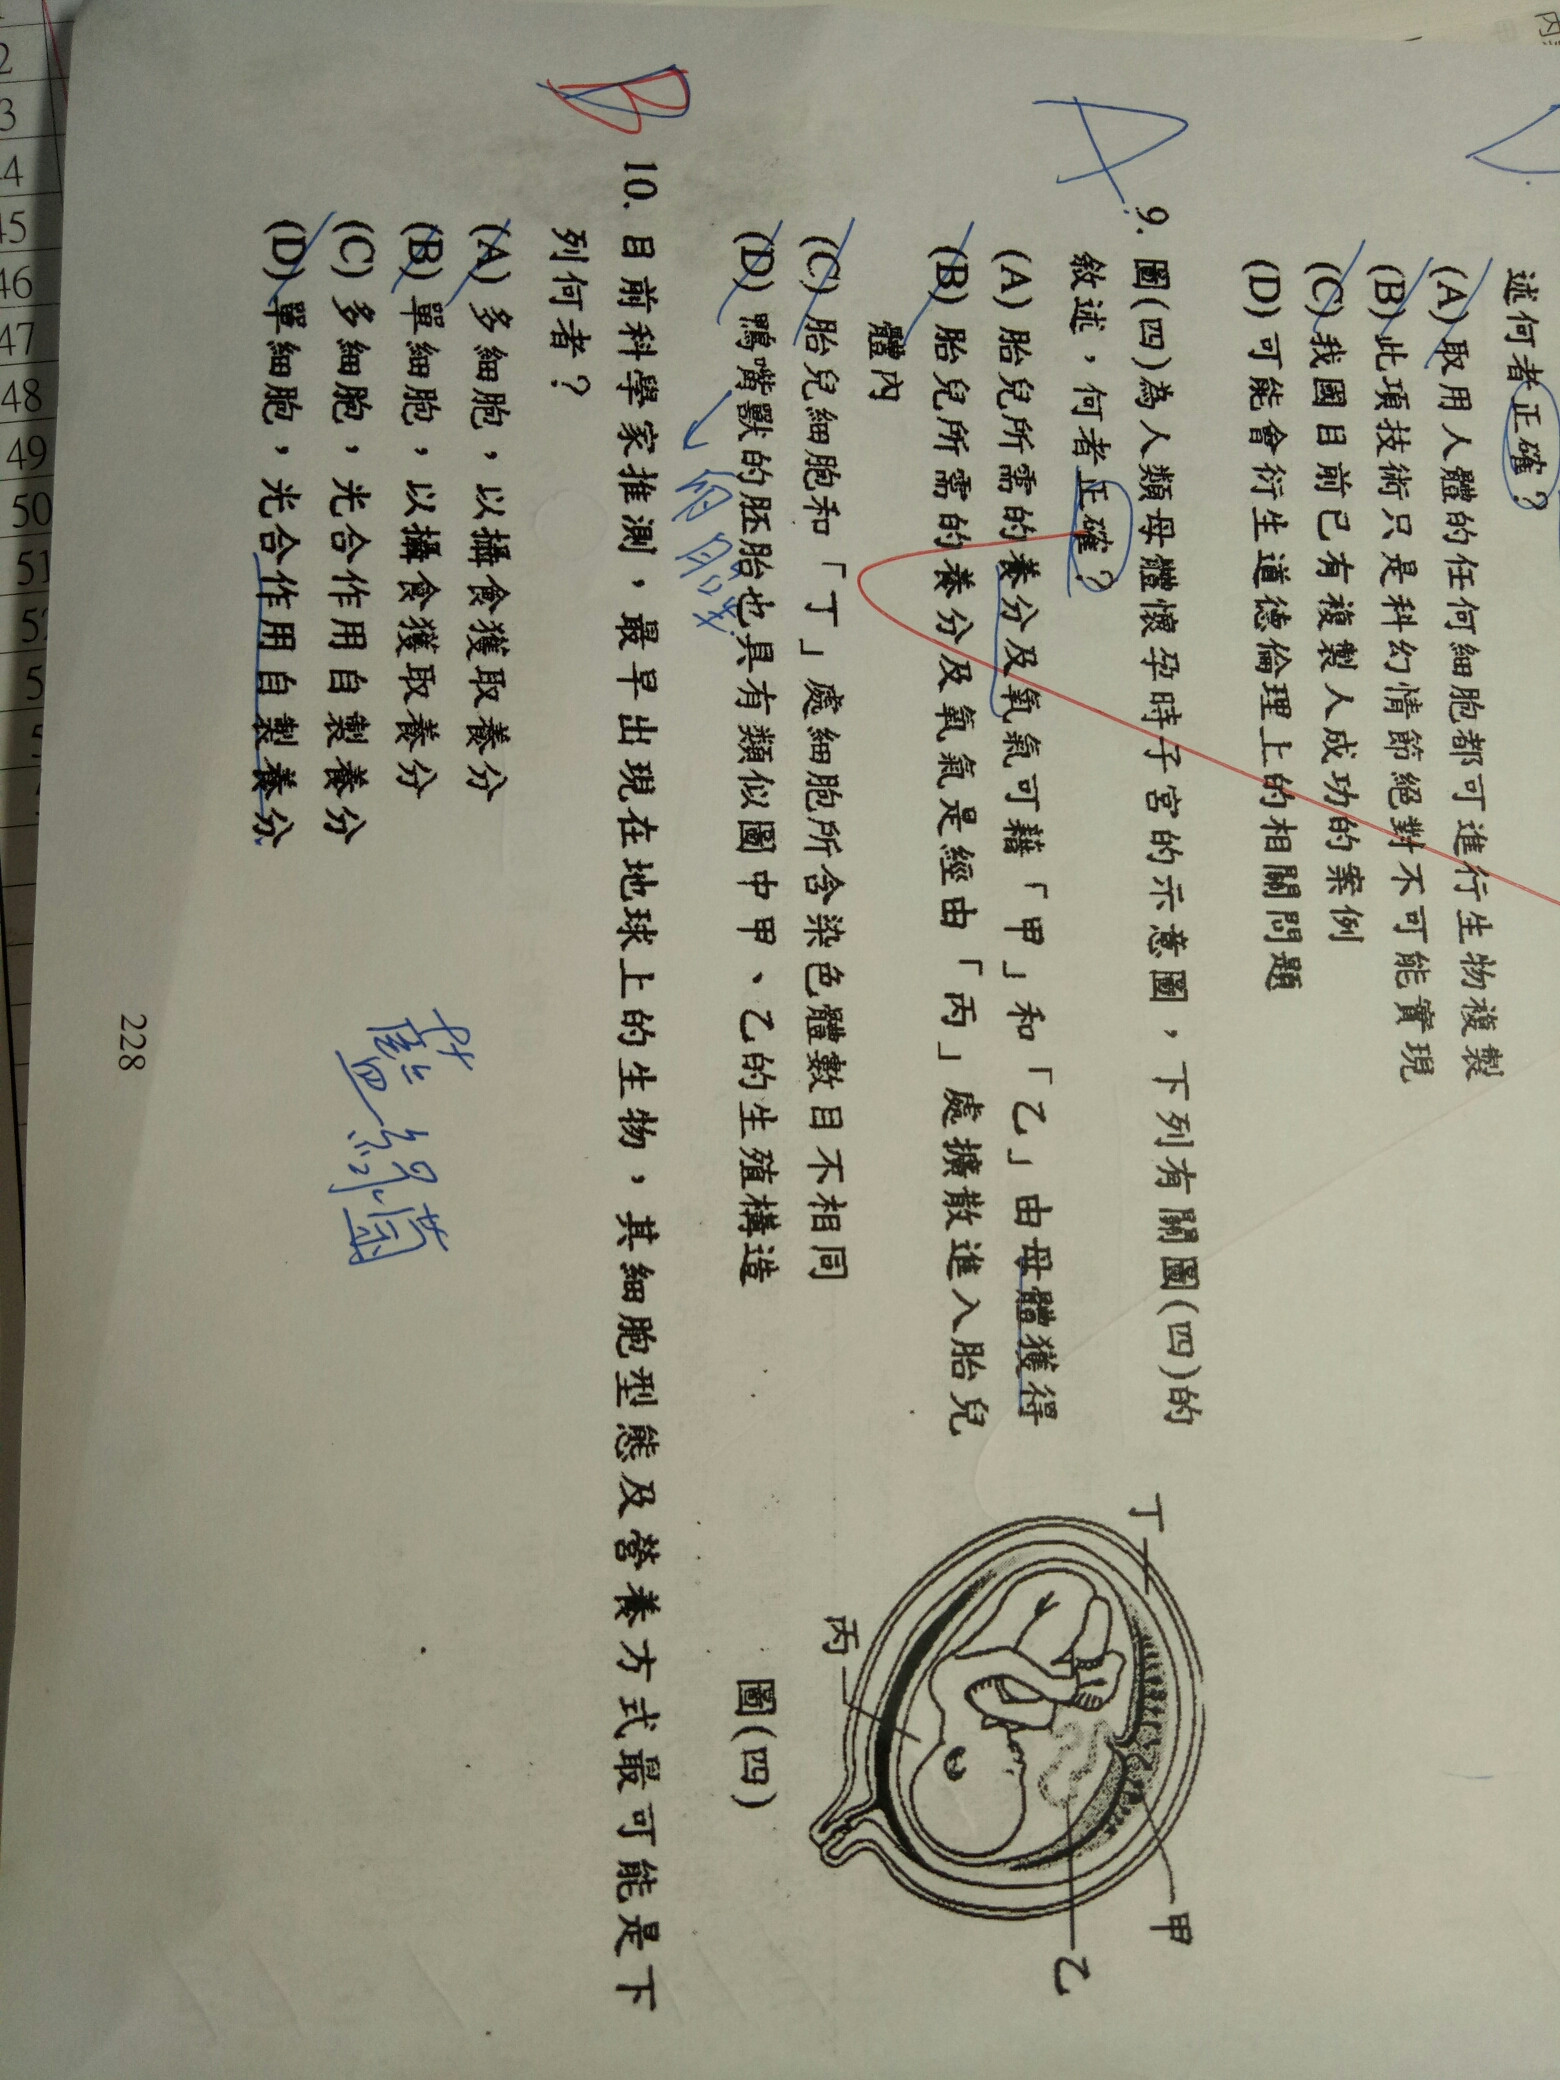 述何者正確?
(A) 取用人體的任何細胞都可進行生物複製
(B) 此項技術只是科幻情節絕對不可能實現
(C) 我國目前已有複製人成功的案例
(D) 可能會衍生道德倫理上的相關問題
A
9. 圖(四)為人類母體懷孕時子宮的示意圖，下列有關圖(四)的
敘述，何者正確?
(A) 胎兒所需的養分及氧氣可藉「甲」和「乙」由母體獲得
(B) 胎兒所需的養分及氧氣是經由「丙」處擴散進入胎兒
體內
(C) 胎兒細胞和「丁」處細胞所含染色體數目不相同
(D) 鴨嘴獸的胚胎也具有類似圖中甲、乙的生殖構造
丁
甲
乙
丙
圖(四)
B
10. 目前科學家推測，最早出現在地球上的生物，其細胞型態及營養方式最可能是下
列何者?
(A) 多細胞，以攝食獲取養分
(B) 單細胞，以攝食獲取養分
(C) 多細胞，光合作用自製養分
(D) 單細胞，光合作用自製養分
藍綠菌
228
2
3
4
45
46
47
48
49
50
51